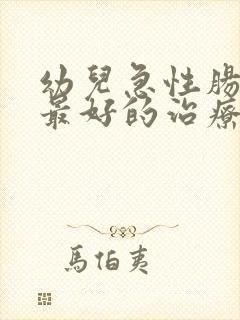 幼兒急性腸
最好的治療
馬伯夷